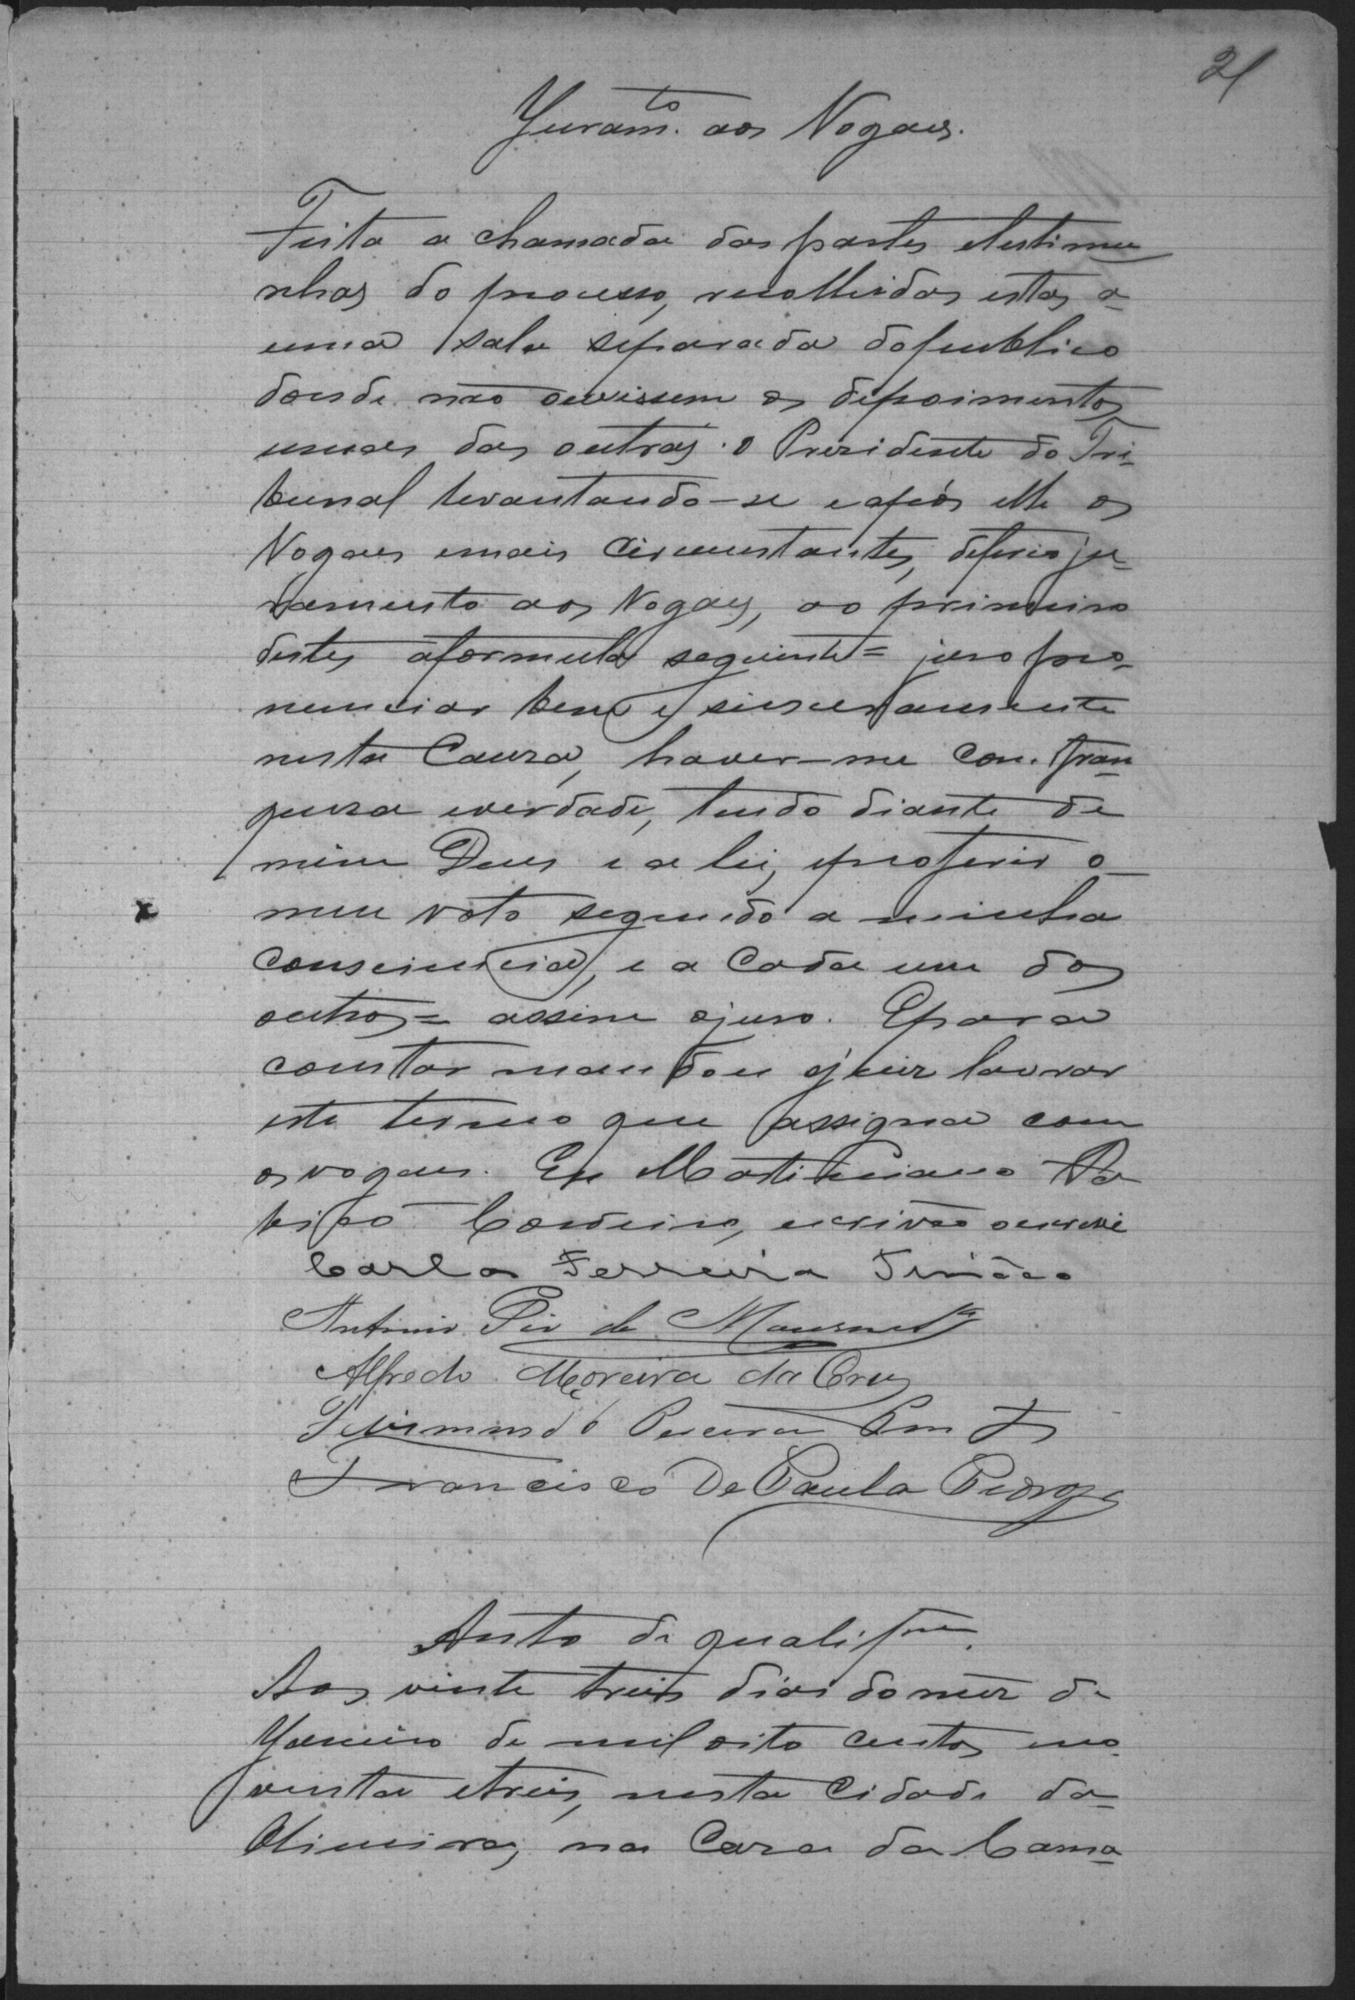 21
Juram.to aos Vogaes.
Feita a chamada das partes etestimu
nhas do processo, recolhidas estas a
uma sala separada dopublico
donde não ouvissem os depoimentos
umas das outras. o Presidente do Tri-
bunal levantando-se e após elle os
Vogaes emais circunstantes, deferio ju-
ramento aos Vogaes, ao primeiro
destes aformula seguinte = juro pro-
nunciar bem e sinceramente
nesta Causa, haver-me com fran
queza everdade, tendo diante de
mim Deus e a lei, eproferir o
meu voto segundo a minha
consciencia, e a Cada um dos
outros = assim ojuro. Epara
constar mandou ojuiz lavrar
este termo que assigna com
osvogaes. Eu Cordeiro, escrivão oescrevi
Carlos Ferreira
Antonio Pio de
Alfredo Moreira da Cruz
Pereira
Francisco De Paula
Auto de qualif.
Aos vinte treis dias domez de
Janeiro de mil oito centos no
venta etreis, nesta Cidade da
Oliveira, na Caza da Cama